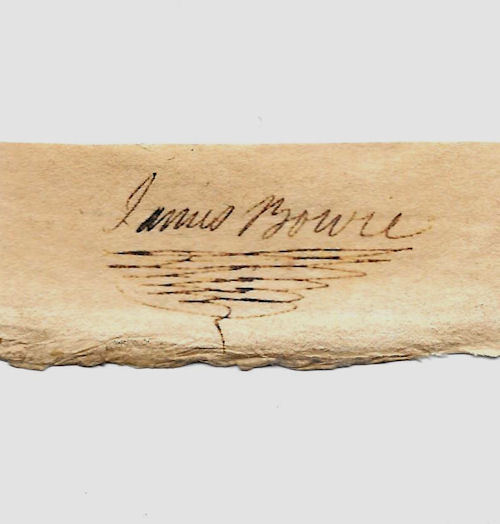 James Bowie